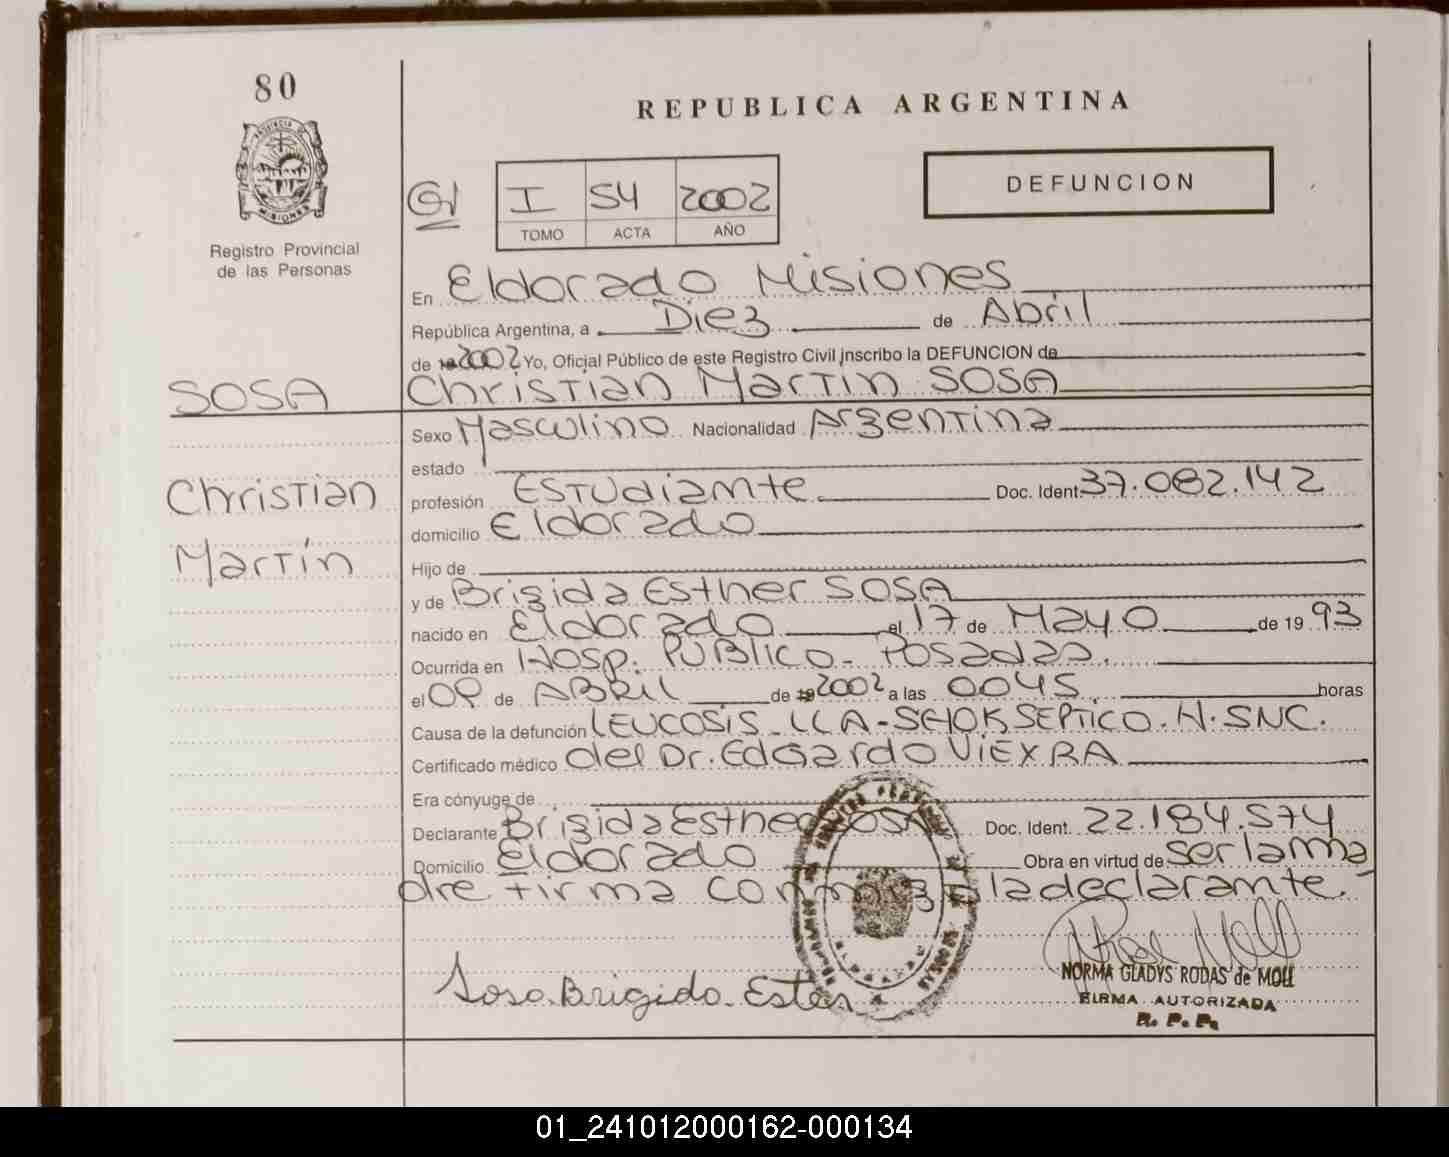 80
PROVINCIA DE
MISIONES
Registro Provincial
de las Personas
SOSA
Christian
Martín
REPUBLICA ARGENTINA
I 54 2002
TOMO ACTA AÑO
DEFUNCION
En Eldorado Misiones
República Argentina, a Diez de Abril
de 2002 Yo, Oficial Público de este Registro Civil inscribo la DEFUNCION de
Christian Martín SOSA
Sexo Masculino Nacionalidad Argentina
estado
profesión Estudiante Doc. Ident. 37.082.142
domicilio Eldorado
Hijo de
y de Brigida Esther SOSA
nacido en Eldorado el 17 de Mayo de 1993
Ocurrida en Hosp. PUBLICO - Posadas.
el 09 de ABRIL de 2002 a las 0045 horas
Causa de la defunción LEUCOSIS - LLA - SHOK SEPTICO. H. SNC.
Certificado médico del Dr. Edgardo VIEXRA
Era cónyuge de
Declarante Brigida Esther SOSA Doc. Ident. 22.184.574
Domicilio Eldorado Obra en virtud de ser la ma
dre firma conmigo la declarante.-
Sosa Brigida Ester
NORMA GLADYS RODAS de MOLL
FIRMA AUTORIZADA
R. P. P.
01_241012000162-000134